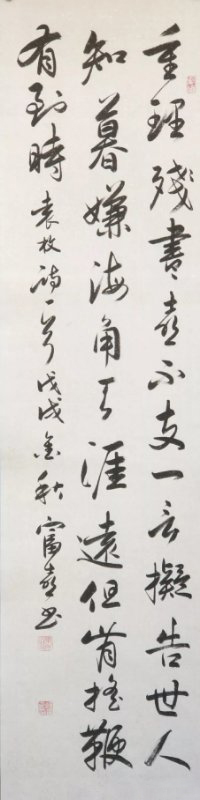 重理残書喜不支一言擬告世人
知莫嫌海角天涯遠但肯摇鞭
有到時 袁枚诗一首 戊戌金秋 富喜书